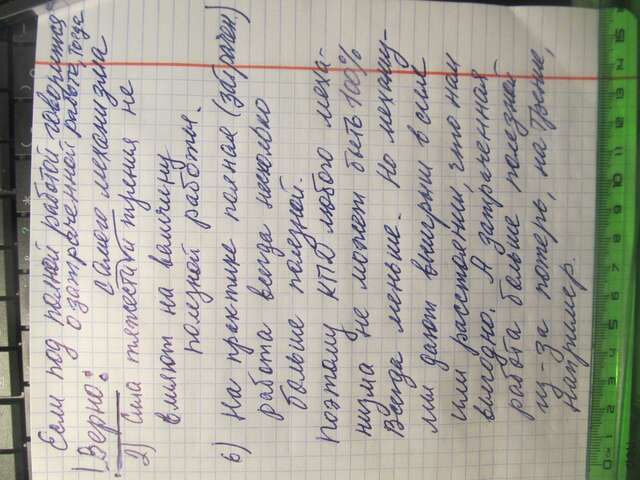 Если под полной работой говорится
о затраченной работе, тогда
Верно:
самого механизма
2) Сила тяжести и трения не
влияют на величину
полезной работы.
6) На практике полная (затрачен.)
работа всегда несколько
больше полезной.
Поэтому КПД любого меха-
низма не может быть 100%
Всегда меньше. Но механиз-
мы дают выигрыш в силе
или расстоянии, что нам
выгодно. А затраченная
работа больше полезной
из-за потерь, на трение,
например.
0 см 1 2 3 4 5 6 7 8 9 10 11 12 13 14 15